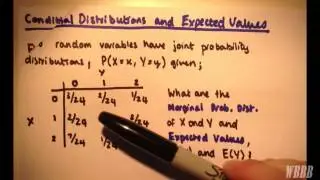 Conditional Distributions and Expected Values
random variables have joint probability
distributions, P(X=x, Y=y) given;
Y
0 1 2
0 2/24 1/24
X 1 2/24 2/24
2 1/24
What are the
Marginal Prob. Dist.
of X and Y and
Expected Values,
and E(Y)?